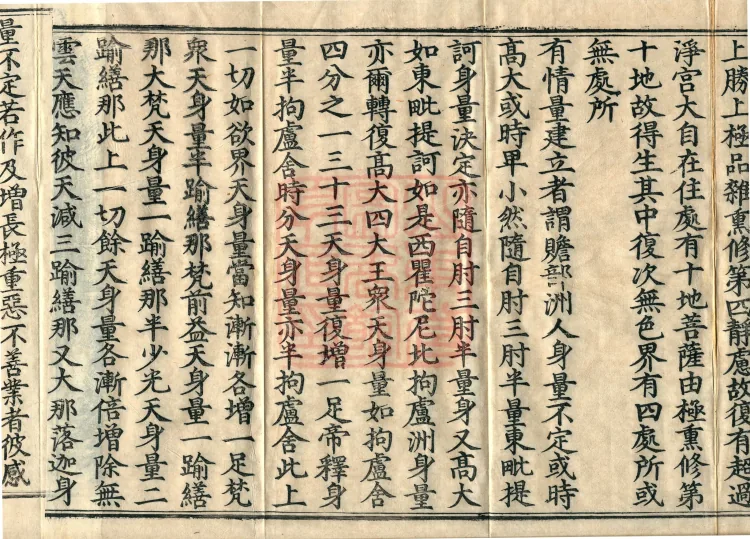 上勝上極品雜熏修第四靜慮故復有超過
淨宮大自在住處有十地菩薩由極熏修第
十地故得生其中復次無色界有四處所或
無處所
有情量建立者謂贍部洲人身量不定或時
高大或時卑小然隨自肘三肘半量東毗提
訶身量決定亦隨自肘三肘半量身又高大
如東毗提訶如是西瞿陀尼北拘盧洲身量
亦爾轉復高大四大王衆天身量如拘盧舍
四分之一三十三天身量復增一足帝釋身
量半拘盧舍時分天身量亦半拘盧舍此上
一切如欲界天身量當知漸漸各增一足梵
衆天身量半踰繕那梵前益天身量一踰繕
那大梵天身量一踰繕那半少光天身量二
踰繕那此上一切餘天身量各漸倍增除無
雲天應知彼天減三踰繕那又大那落迦身
量不定若作及增長極重惡不善業者彼感